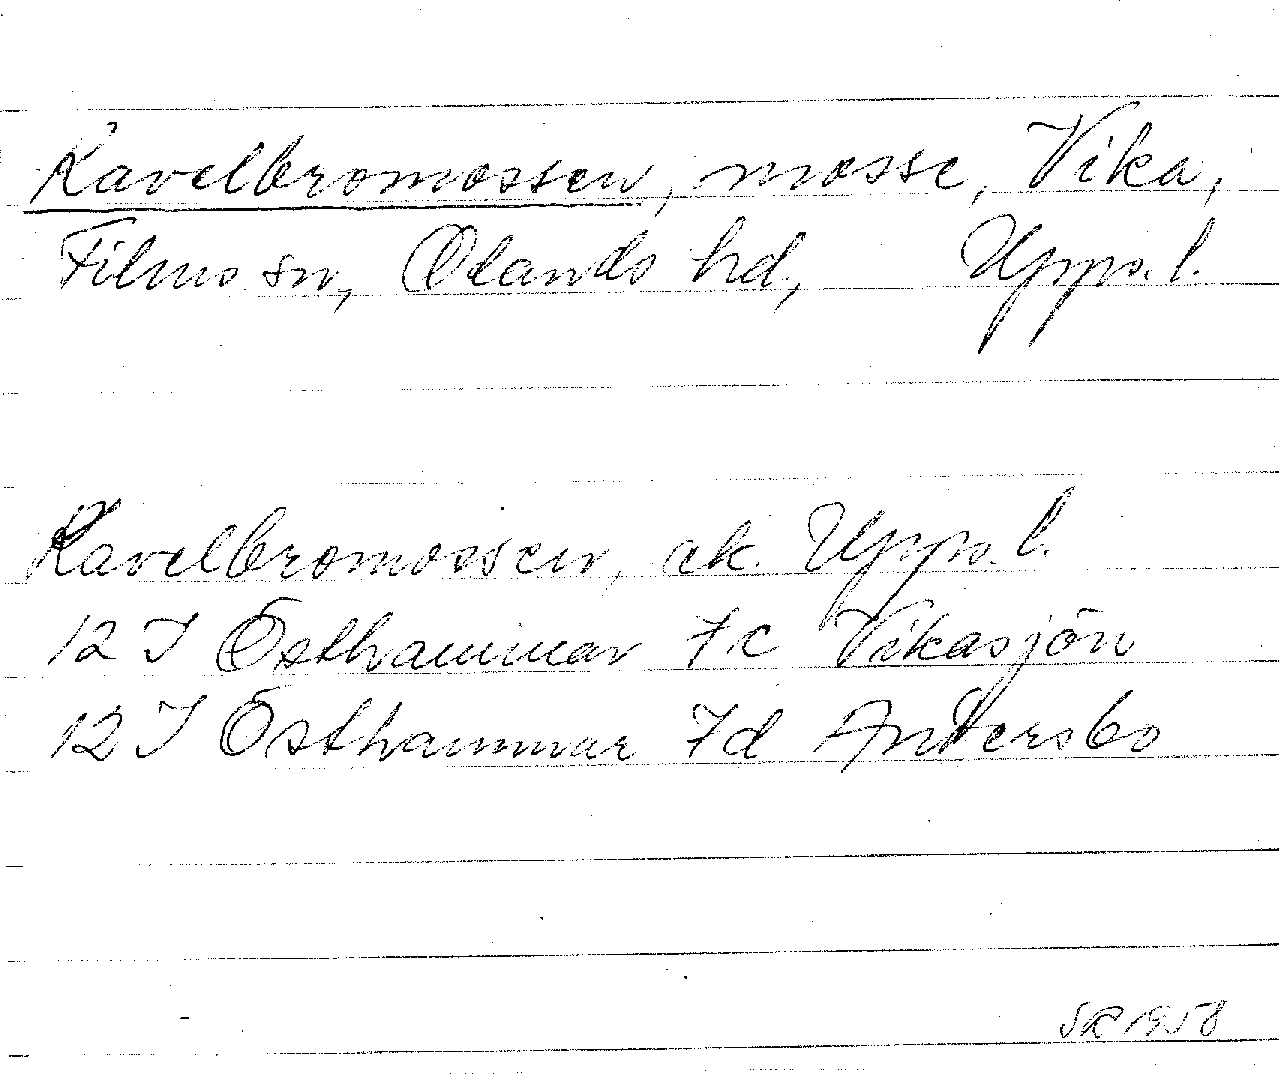 Kavelbromossen, mosse, Vika,
Films sn, Olands hd, Upps. l.
Kavelbromossen, ek. Upps. l.
12 I Östhammar 7c Vikasjön
12 I Östhammar 7d Andersbo
SR 1958